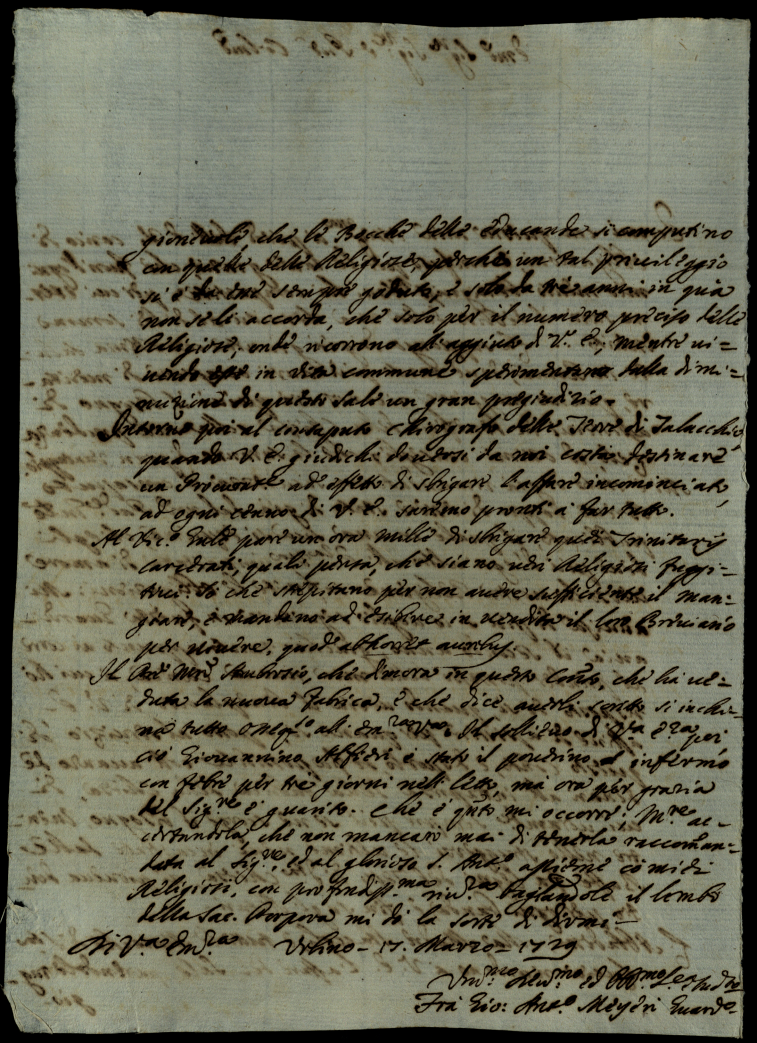 gionevole, che le Bocche delle Educande si computino
con quelle delle Religiose, perche un tal privileggio
si è da esse sempre goduto, e solo da tre anni in quà
non se li accorda, che solo per il numero preciso delle
Religiose, onde ricorrono all' aggiuto di V. E., mentre vi=
vendo esse in vita commune sperimentano dalla dimi=
nuzione di questo sale un gran pregiudizio.
Intorno poi al consaputo Chirografo delle Terre di Talacchio
quando V. E. giudichi doversi da noi costà destinare
un ad effetto di sbrigare l'affare incominciato,
ad ogni cenno di V. E. saremo pronti a far tutto.
Al Vic.o pare un ora mille di sbrigare quei Trinitarij
carcerati, quali porta, che siano veri Religiosi fuggi=
tivi. che strepitano per non avere sufficiente il man=
giare, e mandino ad esibire in vendita il loro Breviario
per vivere, quod abhorret auribus.
Il Ambrosio, che dimora in questo Con.to, che ha ve=
duta la nuova fabrica, e che dice averli scritto si inchi=
na tutto osseq.so all' Em.za V.ra. Il di V.a E.za per
ciò Giovannino Alfieri è stato il poverino infermo
con febre per tre giorni nel letto, mà ora per grazia
del Sig.re è guarito. Che è q.to mi occorre, ac=
certandola, che non mancarò mai di tenerla raccoman=
data al Sig.re, ed al glorioso S. Ant.o assieme co' miei
Religiosi, con profondiss.ma riv.za bagiandole il lembo
della Sac. Porpora mi dò la sorte di dirmi
Di V.a Em.za Urbino 17. Marzo 1729
Um.mo Dev.mo ed Obb.mo Se.
Fra Gio: Ant.o Meyeri Guard.o